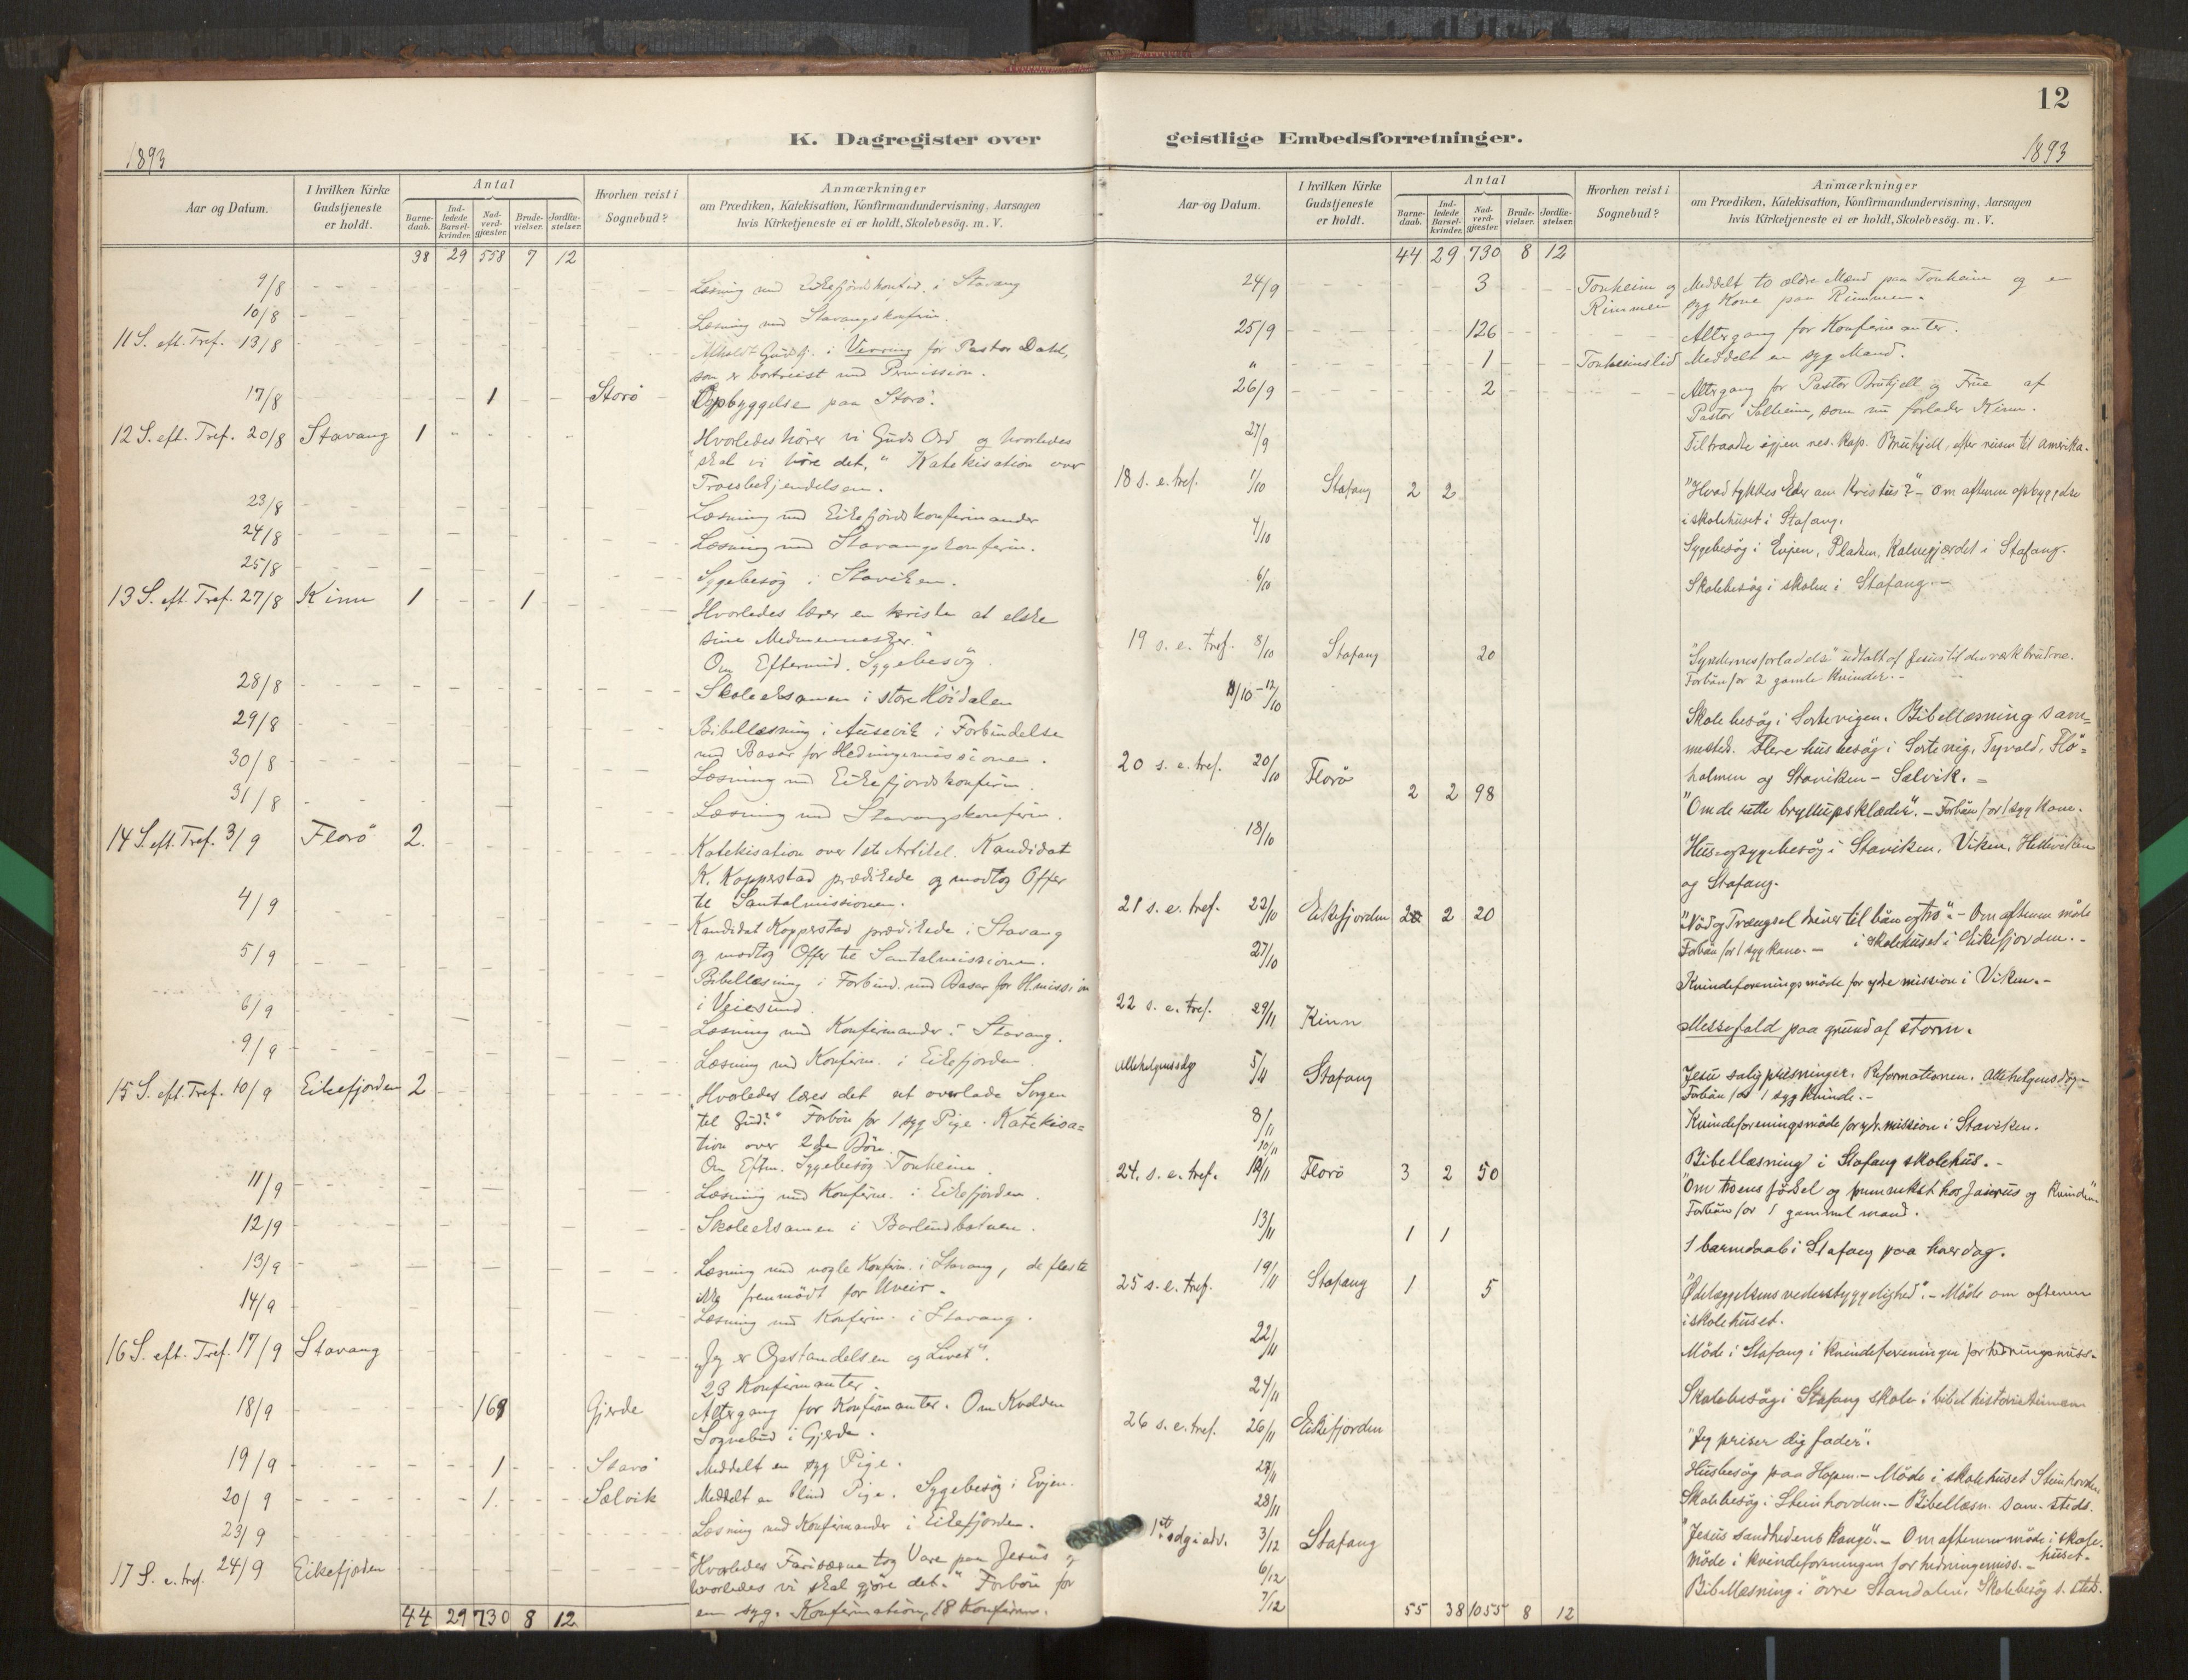 12
K. Dagregister over
geistlige Embedsforretninger.
1893
Aar og Datum.
I hvilken Kirke Gudstjeneste er holdt.
Antal
Barne-daab.
Ind-ledede Barsel-kvinder.
Nad-verd-gjæster.
Brude-vielser.
Jordfæ-stelser.
Hvorhen reist i Sognebud?
Anmærkninger
om Prædiken, Katekisation, Konfirmandundervisning, Aarsagen
hvis Kirketjeneste ei er holdt, Skolebesøg. m. V.
38 29 558 7 12
9/8 Læsning med Eikefjordskonfirm. i Stavang
10/8 Læsning med Stavangskonfirm.
11 S. eft. Tref. 13/8 Afholdt Gudstj. i Vevring for Pastor Dahl,
som er bortreist med Permission.
17/8 1 Storö Opbyggelse paa Storö.
12 S. eft. Tref. 20/8 Stavang 1 "Hvorledes hører vi Guds Ord og hvorledes
skal vi høre det." Katekisation over
Troesbekjendelsen.
23/8 Læsning med Eikefjords konfirmander
24/8 Læsning med Stavangskonfirm.
25/8 Sygebesøg i Staviken.
13 S. eft. Tref. 27/8 Kinn 1 1 "Hvorledes lærer en kriste at elske
sine Medmennesker."
Om Eftermid. Sygebesøg.
28/8 Skoleeksamen i store Høidalen
29/8 Bibellæsning i Ausevik i Forbindelse
med Basar for Hedningemissionen.
30/8 Læsning med Eikefjordskonfirm.
31/8 Læsning med Stavangskonfirm.
14 S. eft. Tref. 3/9 Florö 2. Katekisation over 1ste Artikel. Kandidat
K. Kopperstad prædikede og modtog Offer
til Santalmissionen.
4/9 Kandidat Kopperstad prædikede i Stavang
og modtog Offer til Santalmissionen.
5/9 Bibellæsning i Forbind. med Basar for H.mission
i Veiesund.
6/9 Læsning med Konfirmander i Stavang.
9/9 Læsning med Konfirm. i Eikefjorden
15 S. eft. Tref. 10/9 Eikefjorden 2 "Hvorledes læres det at overlade Sorgen
til Gud?" Forbön for 1 syg Pige. Katekisa=
tion over 2den Bön.
Om Eftm. Sygebesøg Tonheim.
11/9 Læsning med Konfirm. i Eikefjorden.
12/9 Skoleeksamen i Barlindbotnen.
13/9 Læsning med nogle Konfirm. i Stavang, de fleste
ikke fremmödt for Uveir.
14/9 Læsning med Konfirm. i Stavang.
16 S. eft. Tref. 17/9 Stavang "Jeg er Opstandelsen og Livet".
23 Konfirmanter.
18/9 169 Gjerde Altergang for Konfirmanter. Om Kvelden
Sognebud i Gjerde.
19/9 1 Stavö Meddelt en syg Pige.
20/9 1. Sælvik Meddelt en blind Pige. Sygebesøg i Evjen.
23/9 Læsning med Konfirmander i Eikefjorden.
17 S. e. tref. 24/9 Eikefjorden "Hvorledes Farisæerne tog Vare paa Jesus og
hvorledes vi skal gjøre det." Forbön for
en syg. Konfirmation, 18 Konfirm.
44 29 730 8 12
1893
Aar og Datum.
I hvilken Kirke Gudstjeneste er holdt.
Antal
Barne-daab.
Ind-ledede Barsel-kvinder.
Nad-verd-gjæster.
Brude-vielser.
Jordfæ-stelser.
Hvorhen reist i Sognebud?
Anmærkninger
om Prædiken, Katekisation, Konfirmandundervisning, Aarsagen
hvis Kirketjeneste ei er holdt, Skolebesøg. m. V.
44 29 730 8 12
24/9 3 Tonheim og Rimmen Meddelt to ældre Mænd paa Tonheim og en
syg Kone paa Rimmen.
25/9 126 Altergang for Konfirmanter.
" 1 Tonheimslid Meddelt en syg Mand.
26/9 2 Altergang for Pastor Bruhjell og Frue af
Pastor Solheim, som nu forlader Kinn.
27/9 Tiltraadte igjen res. Kap. Bruhjell, efter reisen til Amerika.
18 s. e. tref. 1/10 Stafang 2 2 "Hvad tykkes Eder om Kristus?" - Om aftenen opbyggelse
i skolehuset i Stafang.
4/10 Sygebesøg i Evjen, Pladsen, Kalvegjærdet i Stafang.
6/10 Skolebesøg i skolen i Stafang.-
19 s. e. tref. 8/10 Stafang 20 "Syndernes forladelse" udtalt af Jesus til den værkbrudne.
Forbön for 2 gamle Kvinder.-
11/10 - 12/10 Skolebesøg i Sortevigen. Bibellæsning sam=
mesteds. Flere husbesøg i Sortevig, Tyvold, Flö=
holmen og Staviken - Sælvik.=
20 s. e. tref. 20/10 Florö 2 2 98 "Om de rette bryllupsklæder". - Forbön for 1 syg Kone.
18/10 Hus- og sygebesøg i Staviken, Viken, Helleviken
og Stafang.
21 s. e. tref. 22/10 Eikefjorden 2 2 20 "Nöd og Trængsel driver til bön og tro". - Om aftenen möde
Forbön for 1 syg kone. - i skolehuset i Eikefjorden.-
27/10 Kvindeforeningsmöde for ydre mission i Viken.-
22 s. e. tref. 29/11 Kinn Messefald paa grund af storm.
Allehelgensdag 5/11 Stafang Jesu saligprisninger. Reformationen. Allehelgensdag-
Forbön for 1 syg kvinde.-
8/11 Kvindeforeningsmöde for ydr. mission i Staviken.
10/11 Bibellæsning i Stafang skolehus.-
24. s. e. tref. 12/11 Florö 3 2 50 "Om troens födsel og fremvekst hos Jairus og Kvinden".
Forbön for 1 gammel mand.
13/11 1 1 1 barnedaab i Stafang paa hverdag.
25 s. e. tref. 19/11 Stafang 1 5 "Ødelæggelsens vederstyggelighed". - Möde om aftenen
i skolehuset.
22/11 Möde i Stafang i kvindeforeningen for hedningemiss-
24/11 Skolebesøg i Stafang skole i bibelhistorietimen
26 s. e. tref. 26/11 Eikefjorden "Jeg priser dig fader".
27/11 Husbesøg paa Hopen. - Möde i skolehuset Steinhovden
28/11 Skolebesøg i Steinhovden. - Bibellæsn. sam-steds.
1st sdg i adv. 3/12 Stafang "Jesus sandhedens konge". - Om aftenen möde i skole-
huset.
6/12 Möde i kvindeforeningen for hedningemiss.-
7/12 Bibellæsning i övre Standalen, Skolebesøg s. sted.
55 38 1055 8 12